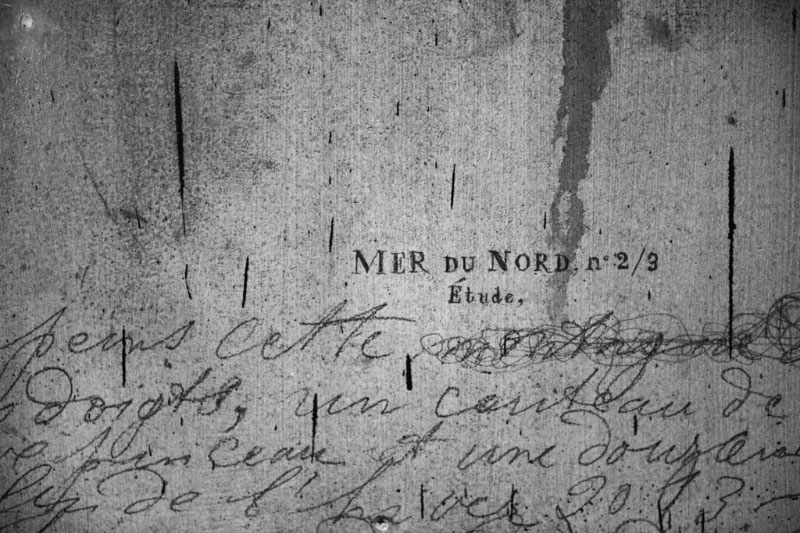 MER DU NORD, n° 2/3
Étude,
peins cette
doigts, un couteau de
pinceau et une douzain
de l'hiver 2013 -